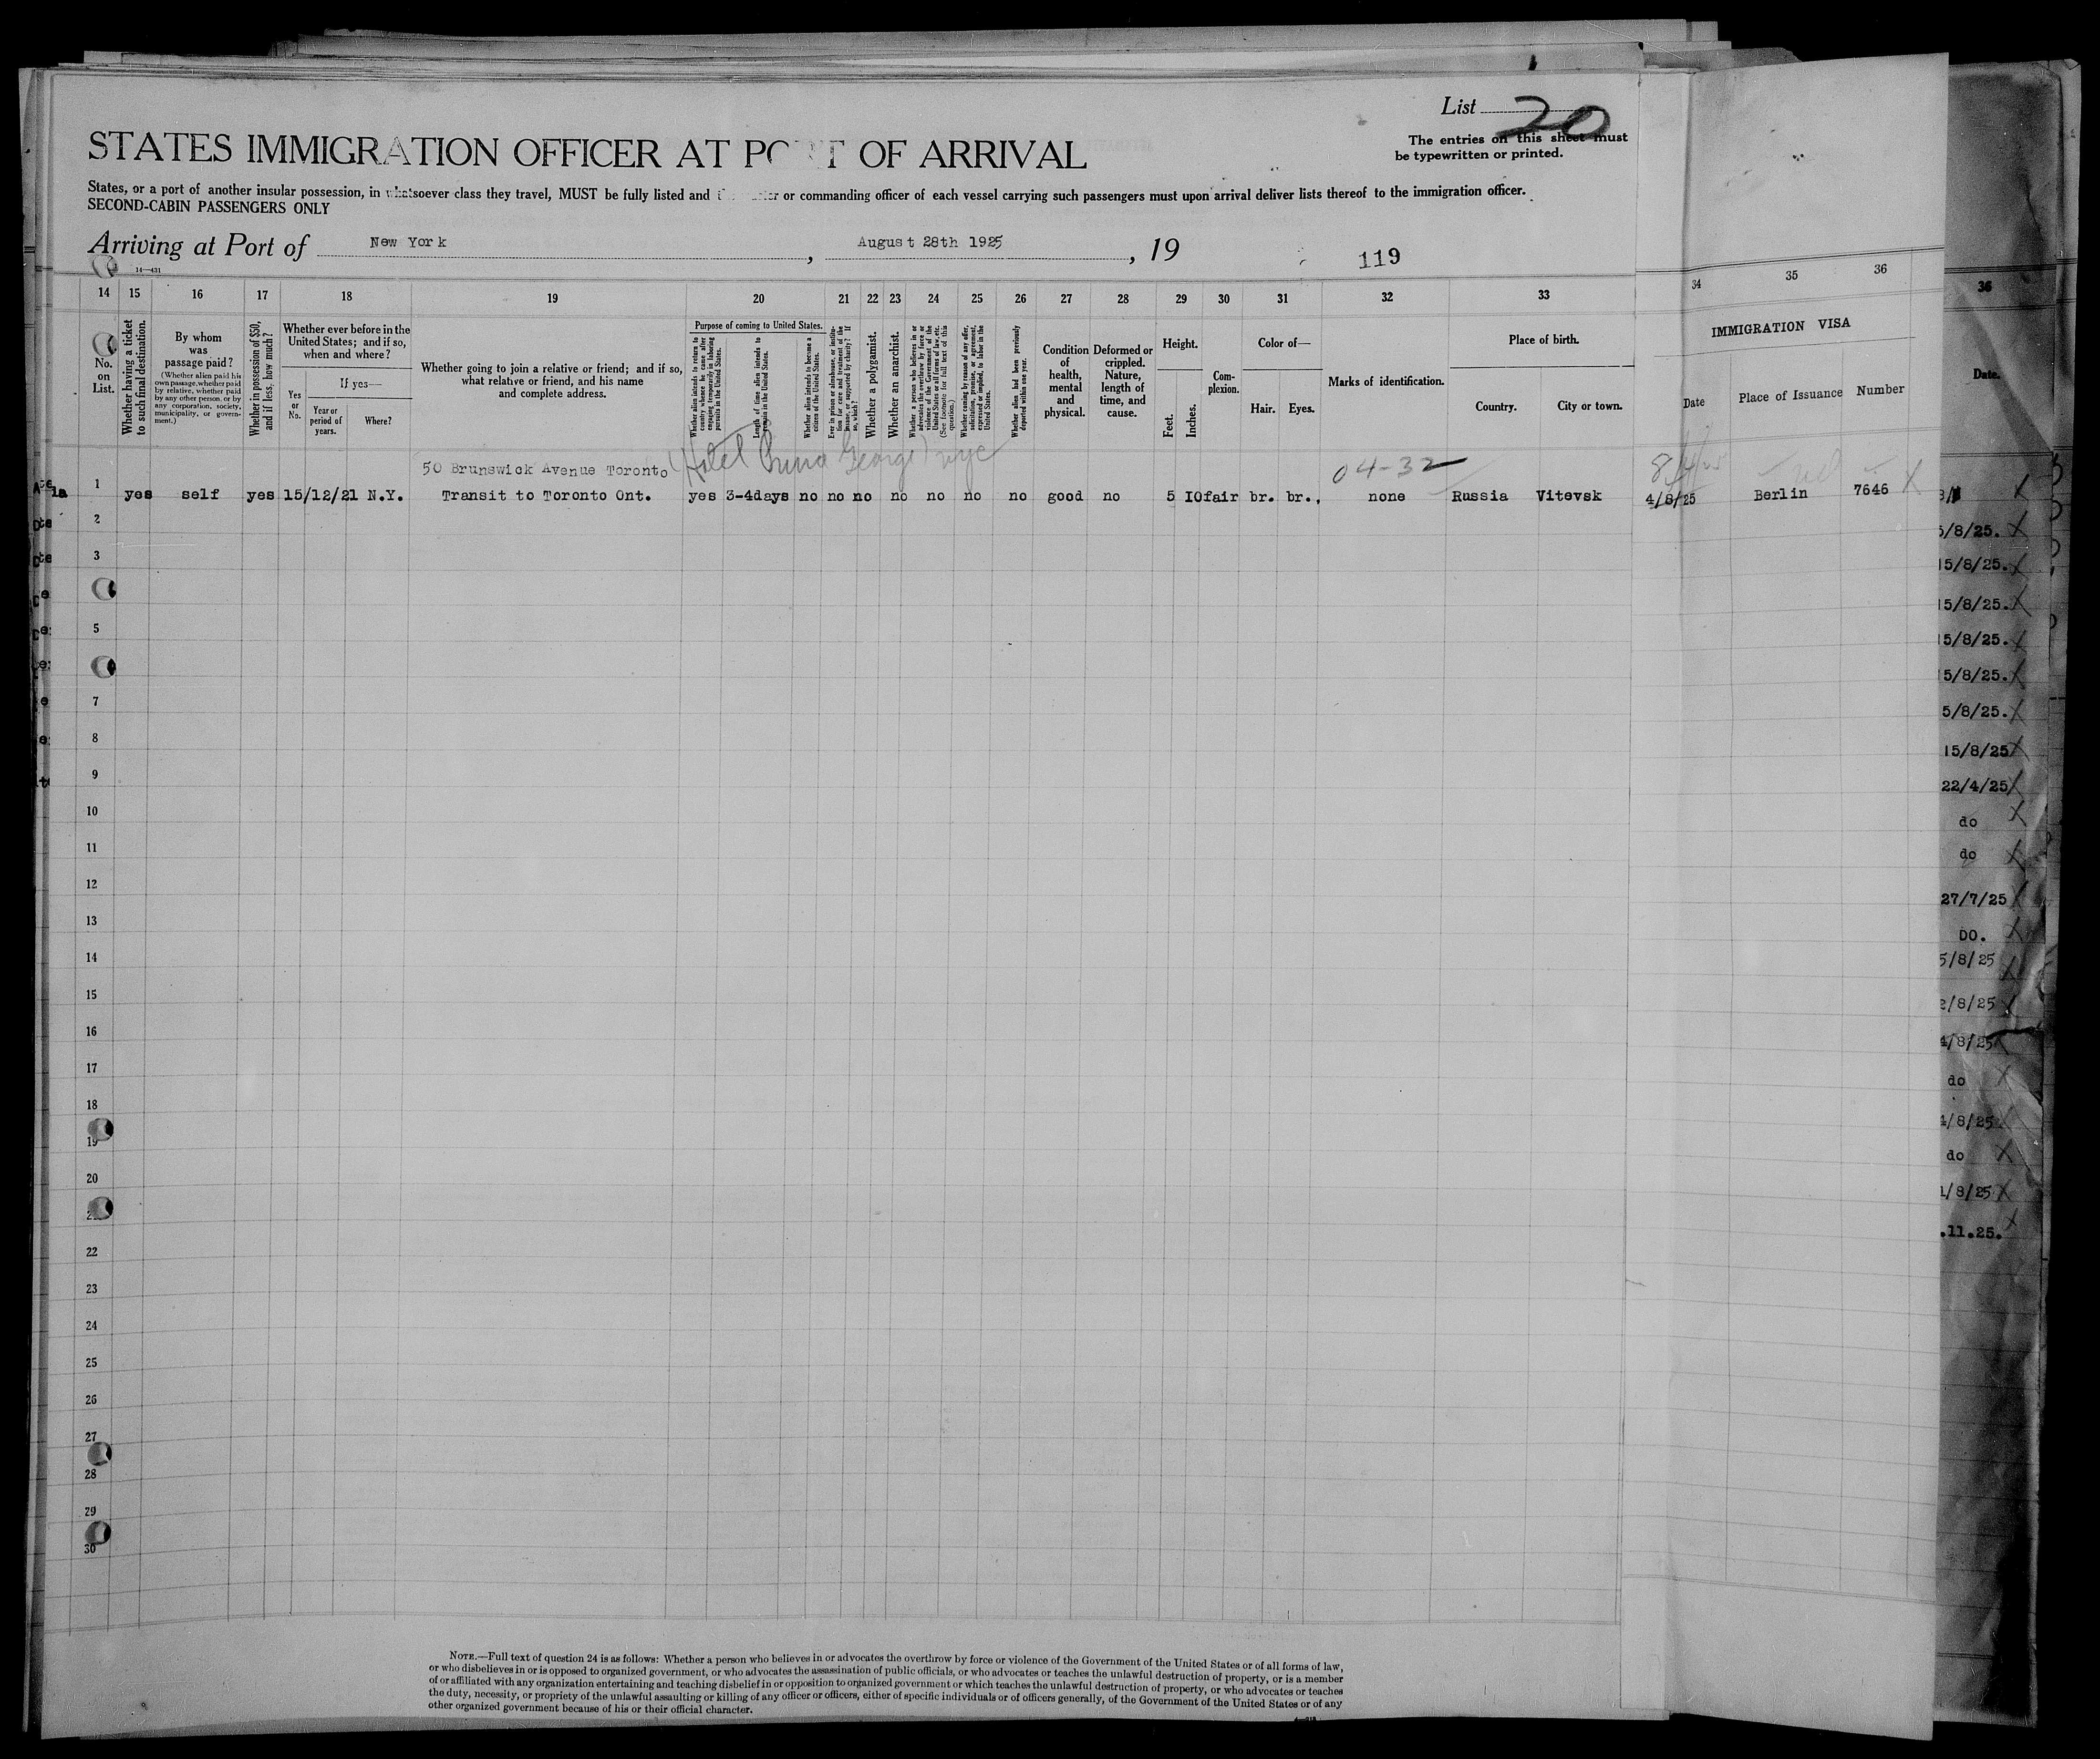 List 20
The entries on this sheet must
be typewritten or printed.
STATES IMMIGRATION OFFICER AT PORT OF ARRIVAL
States, or a port of another insular possession, in whatsoever class they travel, MUST be fully listed and or commanding officer of each vessel carrying such passengers must upon arrival deliver lists thereof to the immigration officer.
SECOND-CABIN PASSENGERS ONLY
Arriving at Port of New York, August 28th 1925, 19
119
14—431
14 15 16 17 18 19 20 21 22 23 24 25 26 27 28 29 30 31 32 33 34 35 36
36
No. on List.
Whether having a ticket to such final destination.
By whom was passage paid?
(Whether alien paid his own passage, whether paid by relative, whether paid by any other person, or by any corporation, society, municipality, or government.)
Whether in possession of $50, and if less, how much?
Whether ever before in the United States; and if so, when and where?
Yes or No.
If yes—
Year or period of years.
Where?
Whether going to join a relative or friend; and if so, what relative or friend, and his name and complete address.
Purpose of coming to United States.
Whether alien intends to return to country whence he came after engaging temporarily in laboring pursuits in the United States.
Length of time alien intends to remain in the United States.
Whether alien intends to become a citizen of the United States.
Ever in prison or almshouse, or institution for care and treatment of the insane, or supported by charity? If so, which?
Whether a polygamist.
Whether an anarchist.
Whether a person who believes in or advocates the overthrow by force or violence of the Government of the United States or all forms of law, etc. (See footnote for full text of this question.)
Whether coming by reason of any offer, solicitation, promise, or agreement, expressed or implied, to labor in the United States.
Whether alien had been previously deported within one year.
Condition of health, mental and physical.
Deformed or crippled. Nature, length of time, and cause.
Height.
Feet.
Inches.
Complexion.
Color of—
Hair.
Eyes.
Marks of identification.
Place of birth.
Country.
City or town.
IMMIGRATION VISA
Date
Place of Issuance
Number
Date.
50 Brunswick Avenue Toronto (Hotel Prince George) nyc
04-32
1 yes self yes 15/12/21 N.Y. Transit to Toronto Ont. yes 3-4days no no no no no no no good no 5 10 fair br. br., none Russia Vitevsk 4/8/25 Berlin 7646 X
2
3
5
7
8
9
10
11
12
13
14
15
16
17
18
19
20
22
23
24
25
26
27
28
29
30
5/8/25. X
15/8/25. X
15/8/25. X
15/8/25. X
15/8/25. X
5/8/25. X
15/8/25 X
22/4/25 X
do X
do X
27/7/25 X
DO. X
5/8/25 X
2/8/25 X
4/8/25 X
do X
4/8/25 X
do X
1/8/25 X
.11.25. X
NOTE.—Full text of question 24 is as follows: Whether a person who believes in or advocates the overthrow by force or violence of the Government of the United States or of all forms of law,
or who disbelieves in or is opposed to organized government, or who advocates the assassination of public officials, or who advocates or teaches the unlawful destruction of property, or is a member
of or affiliated with any organization entertaining and teaching disbelief in or opposition to organized government or which teaches the unlawful destruction of property, or who advocates or teaches
the duty, necessity, or propriety of the unlawful assaulting or killing of any officer or officers, either of specific individuals or of officers generally, of the Government of the United States or of any
other organized government because of his or their official character.